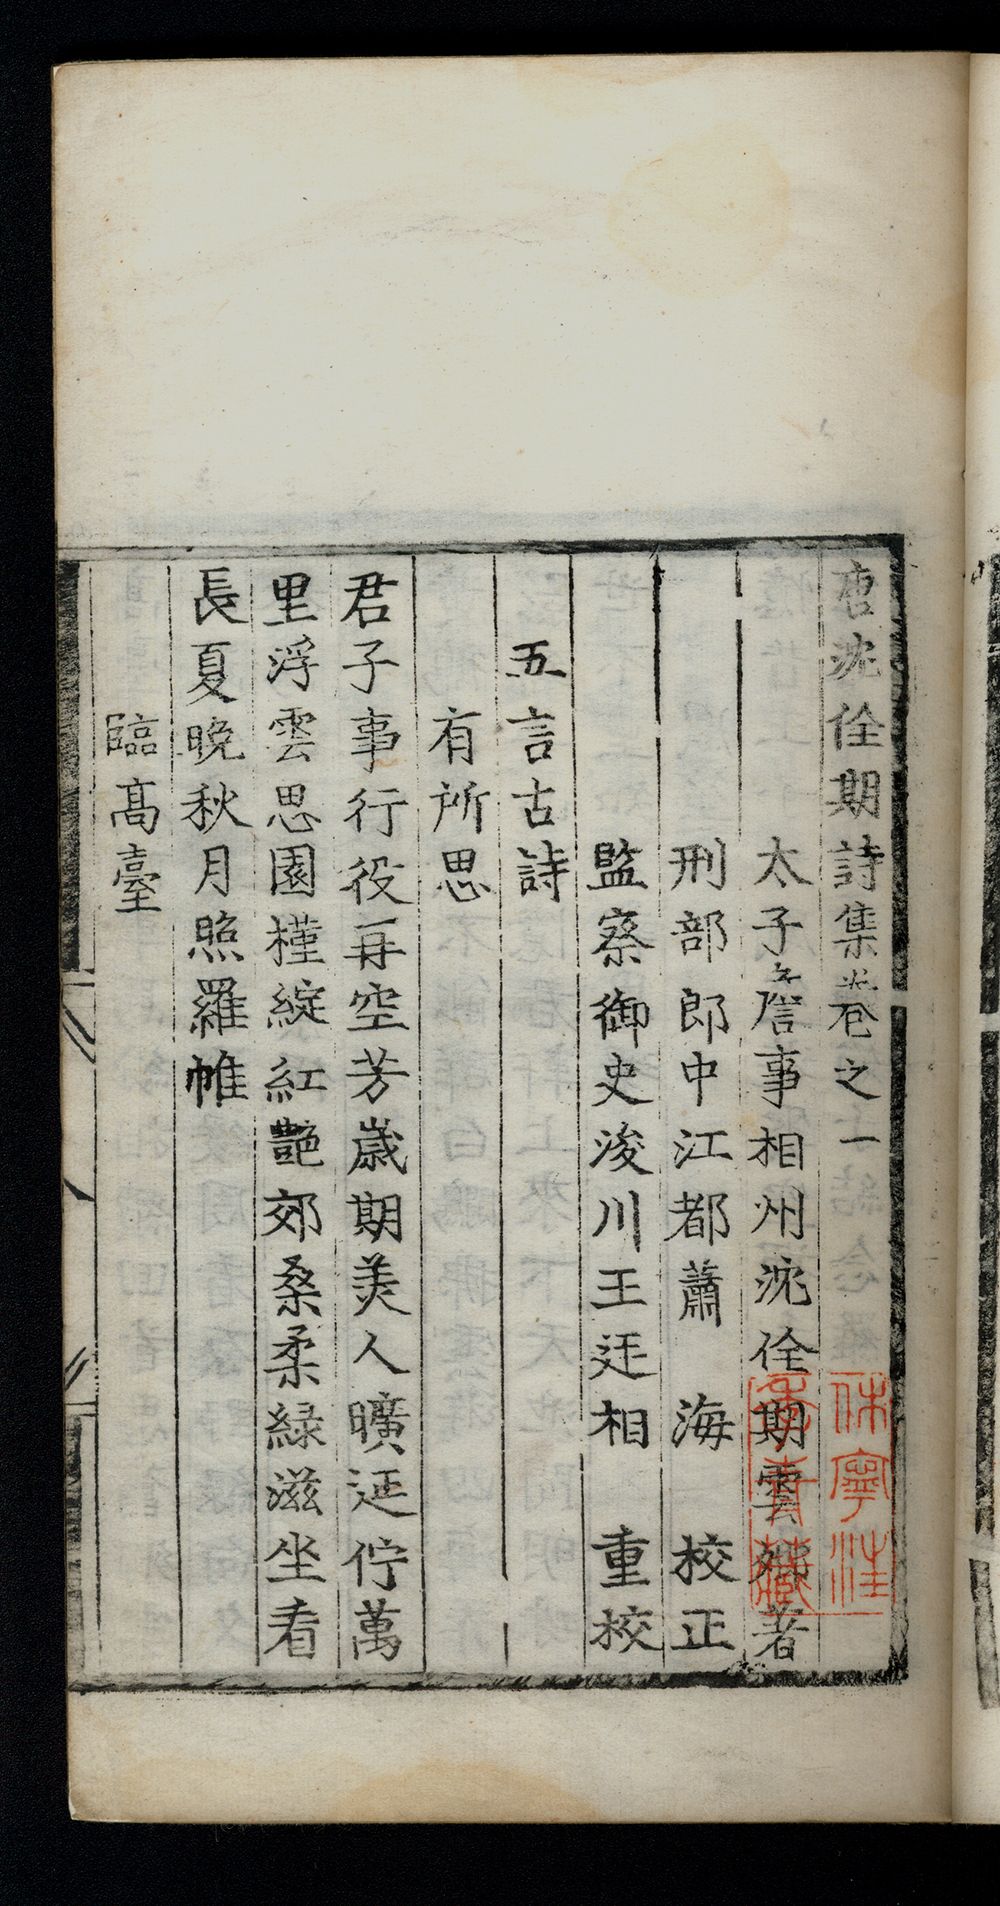 唐沈佺期詩集卷之一
太子詹事相州沈佺期雲卿著
刑部郎中江都蕭 海 校正
監察御史浚川王廷相 重校
五言古詩
有所思
君子事行役再空芳歲期美人曠延佇萬
里浮雲思園槿綻紅艶郊桑柔緑滋坐看
長夏晩秋月照羅帷
臨髙臺
休寧汪
季青藏